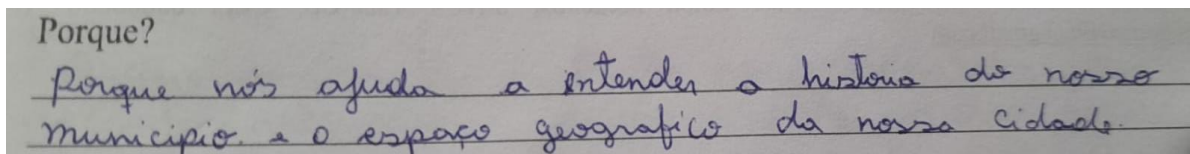 Porque?
Porque nós ajuda a entender a historia do nosso
municipio. e o espaço geografico da nossa cidade.